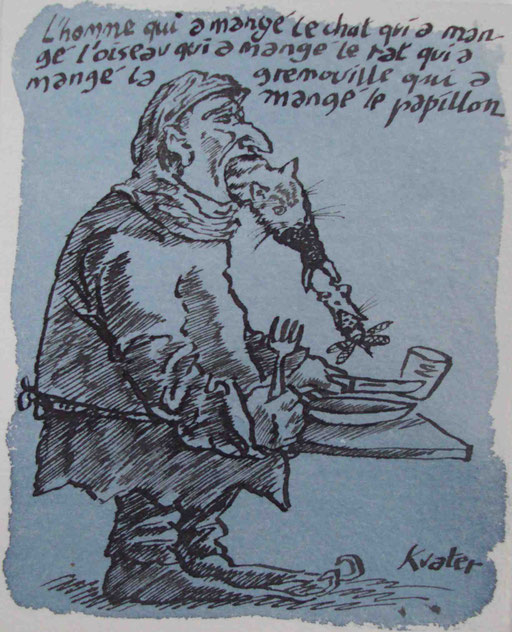 L'homme qui a mangé le chat qui a man-
gé l'oiseau qui a mangé le rat qui a
mangé la grenouille qui a
mangé le papillon
Kvater